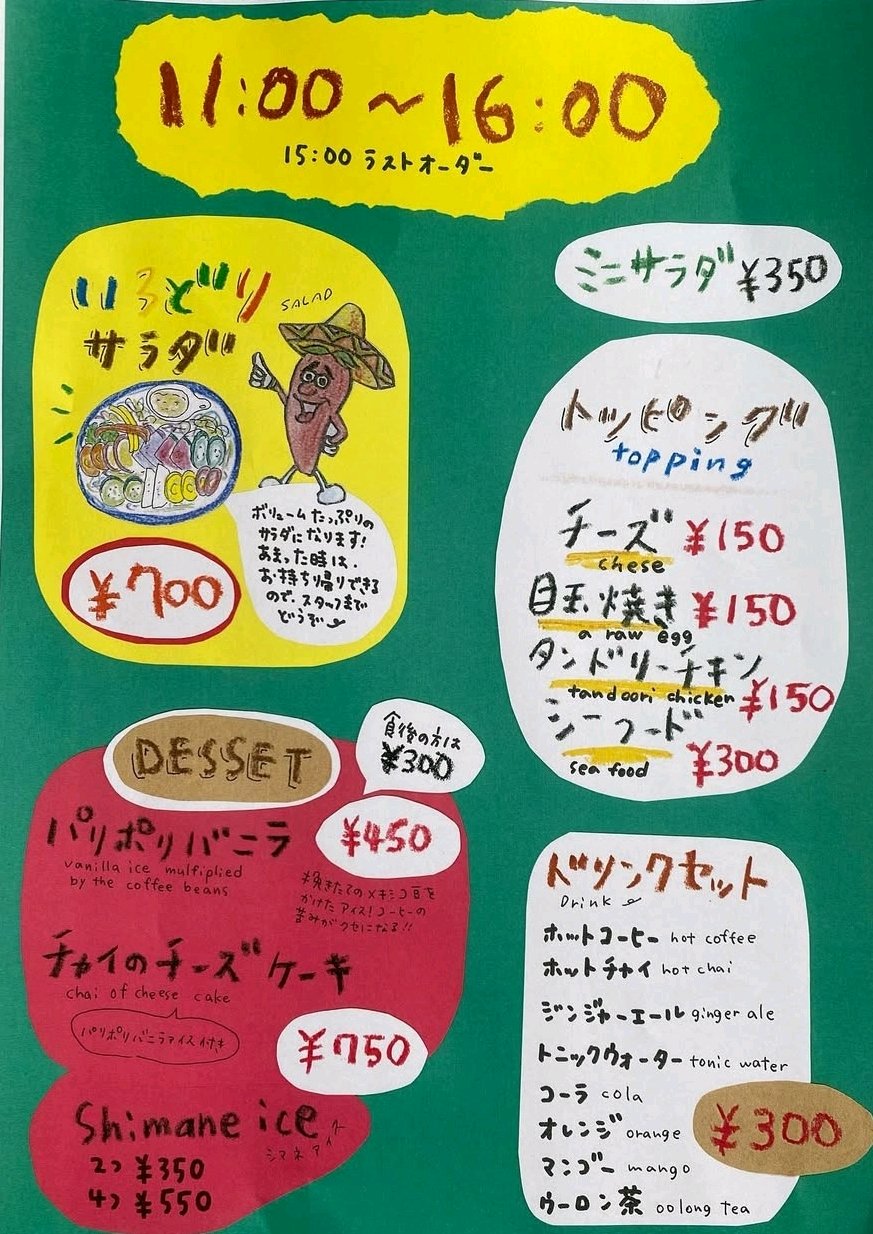 11:00～16:00
15:00 ラストオーダー
いろどり
サラダ
SALAD
ボリュームたっぷりの
サラダになります!
あまった時は、
お持ち帰りできる
ので、スタッフまで
どうぞ
¥700
ミニサラダ ¥350
トッピング
topping
チーズ ¥150
chese
目玉焼き ¥150
a raw egg
タンドリーチキン
tandoori chicken ¥150
シーフード
sea food ¥300
DESSET
食後の方は
¥300
パリポリバニラ ¥450
vanilla ice multiplied
by the coffee beans
挽きたてのメキシコ豆を
かけたアイス!コーヒーの
苦みがクセになる!!
チャイのチーズケーキ
chai of cheese cake
パリポリバニラアイス付き
¥750
Shimane ice
シマネアイス
2つ ¥350
4つ ¥550
ドリンクセット
Drink
ホットコーヒー hot coffee
ホットチャイ hot chai
ジンジャーエール ginger ale
トニックウォーター tonic water
コーラ cola
オレンジ orange
マンゴー mango
ウーロン茶 oolong tea
¥300